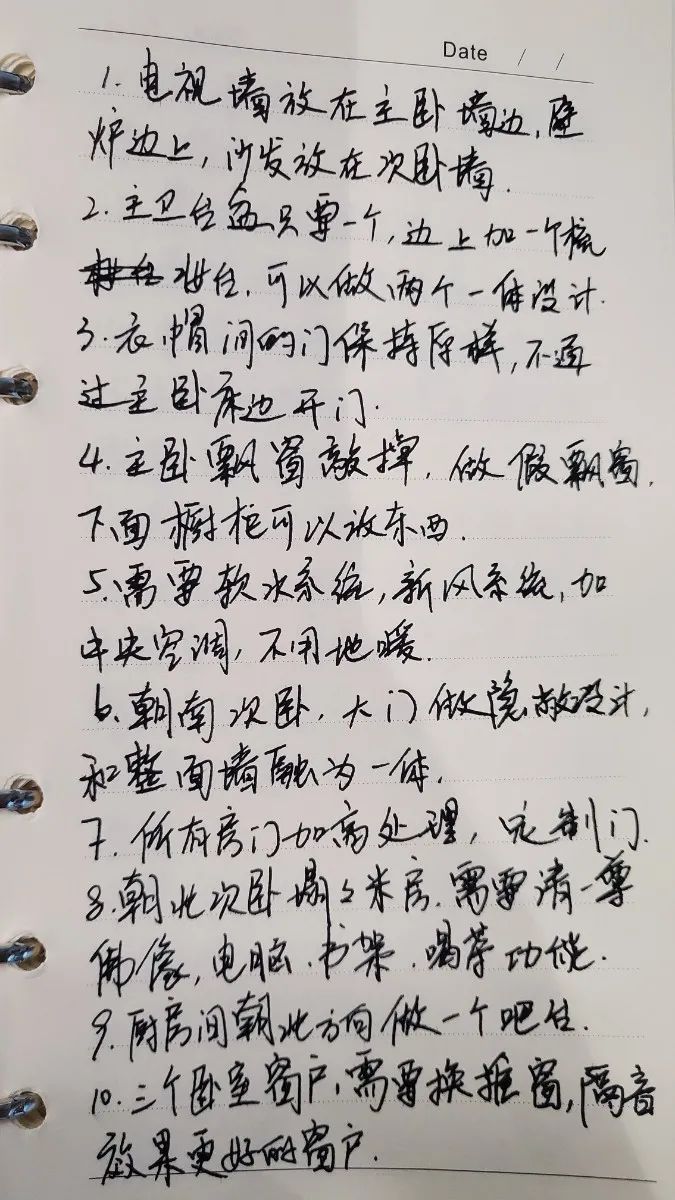 Date / /
1. 电视墙放在主卧墙边,壁
炉边上,沙发放在次卧墙.
2. 主卫台盆只要一个,边上加一个梳
妆台.可以做两个一体设计.
3. 衣帽间的门保持原样,不通
过主卧床边开门.
4. 主卧飘窗敲掉.做假飘窗.
下面橱柜可以放东西.
5. 需要软水系统,新风系统,加
中央空调,不用地暖.
6. 朝南次卧.大门做隐藏设计,
和整面墙融为一体.
7. 所有房门加高处理,定制门.
8. 朝北次卧榻々米房.需要请一尊
佛像,电脑.书架.喝茶功能.
9. 厨房间朝北方向做一个吧台.
10. 三个卧室窗户,需要换推窗,隔音
效果更好的窗户.